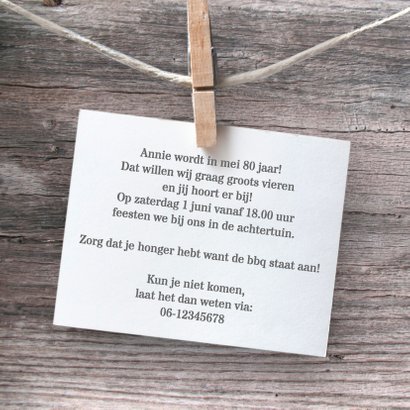 Annie wordt in mei 80 jaar!
Dat willen wij graag groots vieren
en jij hoort er bij!
Op zaterdag 1 juni vanaf 18.00 uur
feesten we bij ons in de achtertuin.
Zorg dat je honger hebt want de bbq staat aan!
Kun je niet komen,
laat het dan weten via:
06-12345678